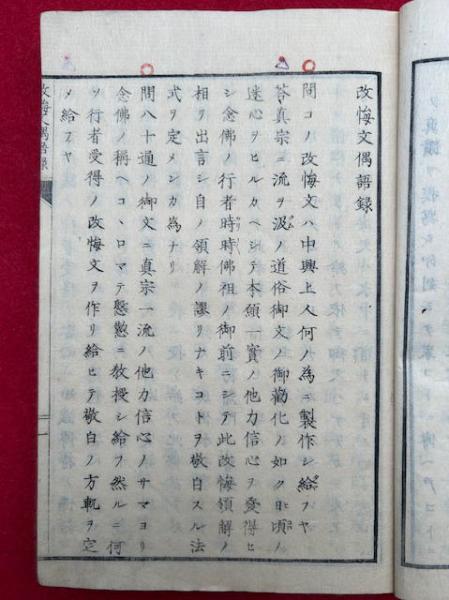 改悔文偶語録
問コノ改悔文ハ中興上人何ノ為ニ製作シ給フヤ
答真宗ニ流ヲ汲ノ道俗御文ノ御勸化ノ如ク日頃ノ
迷心ヲヒルカヘシテ本願一實ノ他力信心ヲ受得ヒ
シ念佛ノ行者時時佛祖ノ御前ニシテ此改悔領解ノ
相ヲ出言シ自ノ領解ノ謬リナキコトヲ敬白スル法
式ヲ定メンカ為ナリ
問八十通ノ御文ニ真宗一流ノ他力信心ノサマヨリ
念佛ノ稱ヘコヽロマテ懇懃ニ教授シ給フ然ルニ何
ソ行者受得ノ改悔文ヲ作リ給ヒテ敬白ノ方軌ヲ定
メ給フヤ
改悔文偶語録
一